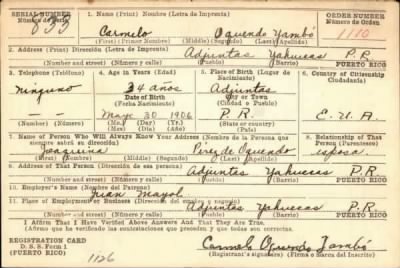 SERIAL NUMBER 1. Name (Print) Nombre (Letra de Imprenta) ORDER NUMBER
Número de Serie Número de Orden
Carmelo Oquendo Zambó 1110
(First) (Primer Nombre) (Middle) (Segundo) (Last) (Apellido)
2. Address (Print) Dirección (Letra de Imprenta)
Adjuntas Yahuecas P.R.
(Town) (Pueblo) (Barrio) PUERTO RICO
3. Telephone (Teléfono) 4. Age in Years (Edad) 5. Place of Birth (Lugar de Nacimiento) 6. Country of Citizenship Ciudadanía
ninguno 34 años Adjuntas
Date of Birth City or Town
(Fecha Nacimiento) (Ciudad o Pueblo)
Mayo 30 1906 P.R. E.U.A.
(Mo.) (Day) (Yr.) (State or country)
(Mes) (Día) (Año) (País)
7. Name of Person Who Will Always Know Your Address (Nombre de la Persona que siempre sabrá su dirección) 8. Relationship of That Person (Parentesco)
Joaquina Pérez de Oquendo esposa
(First) (Nombre) (Middle) (Segundo) (Last) (Apellido)
9. Address of That Person (Dirección de esa persona)
Adjuntas Yahuecas P.R.
(Town) (Pueblo) (Barrio) PUERTO RICO
10. Employer's Name (Nombre del Patrono)
Juan Mayol
11. Place of Employment or Business (Dirección del empleo o negocio)
Adjuntas Yahuecas P.R.
(Town) (Pueblo) (Barrio) PUERTO RICO
I Affirm That I Have Verified Above Answers And That They Are True.
(Afirmo que he verificado las contestaciones que preceden y que todas son ciertas.)
REGISTRATION CARD
D. S. S. Form 1 Carmelo Oquendo Zambó
(Registrar) 1126 (Registrant's signature) (Firma o Marca del Inscrito)